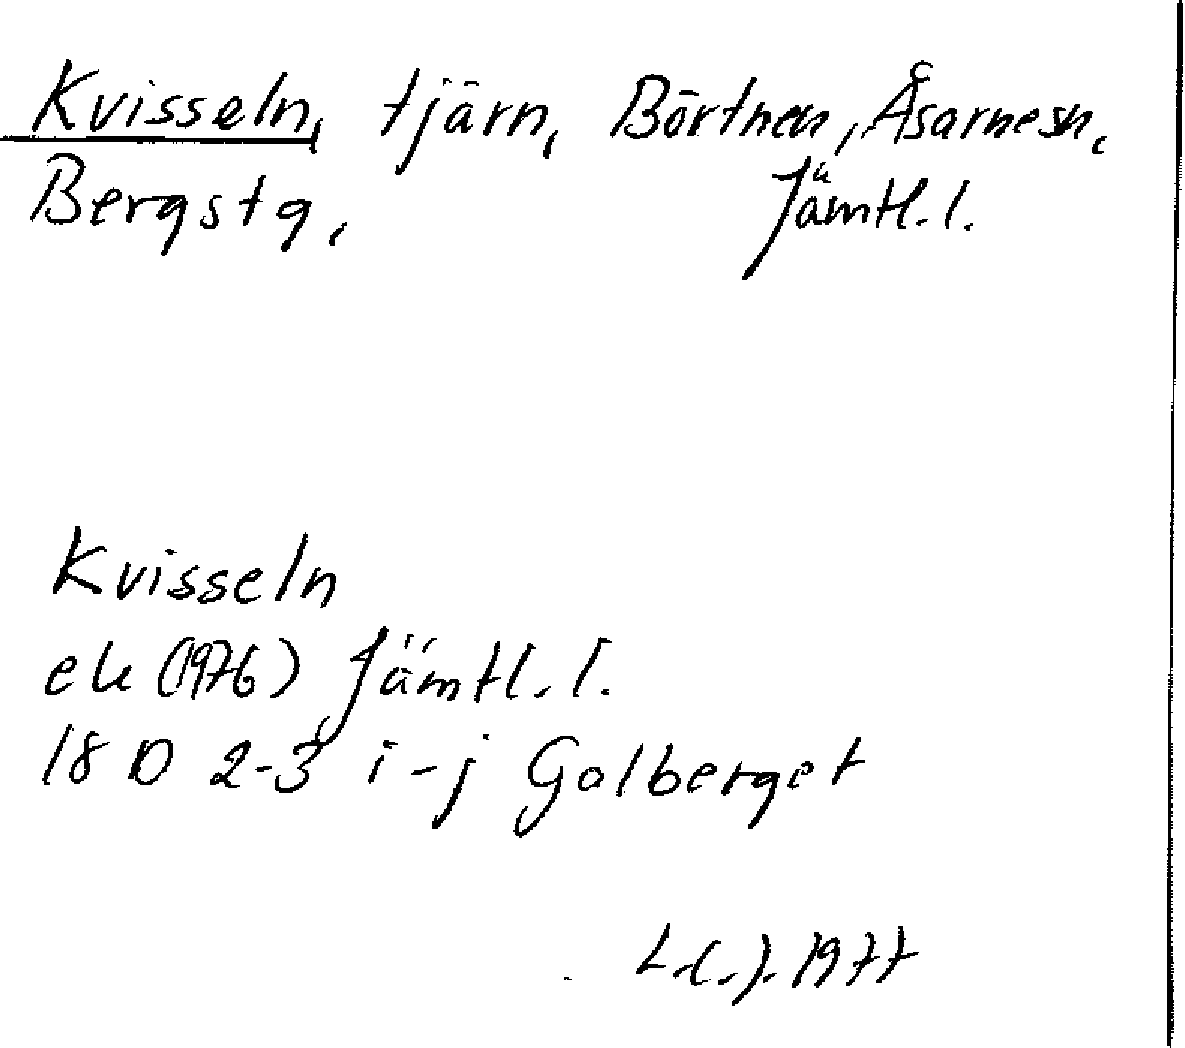 Kvisseln, tjärn, Börtnen, Åsarnesn,
Bergstg, Jämtl.l.
Kvisseln
ek (1976) Jämtl.l.
18 D 2-3 i-j Galberget
L.C.J. 1977